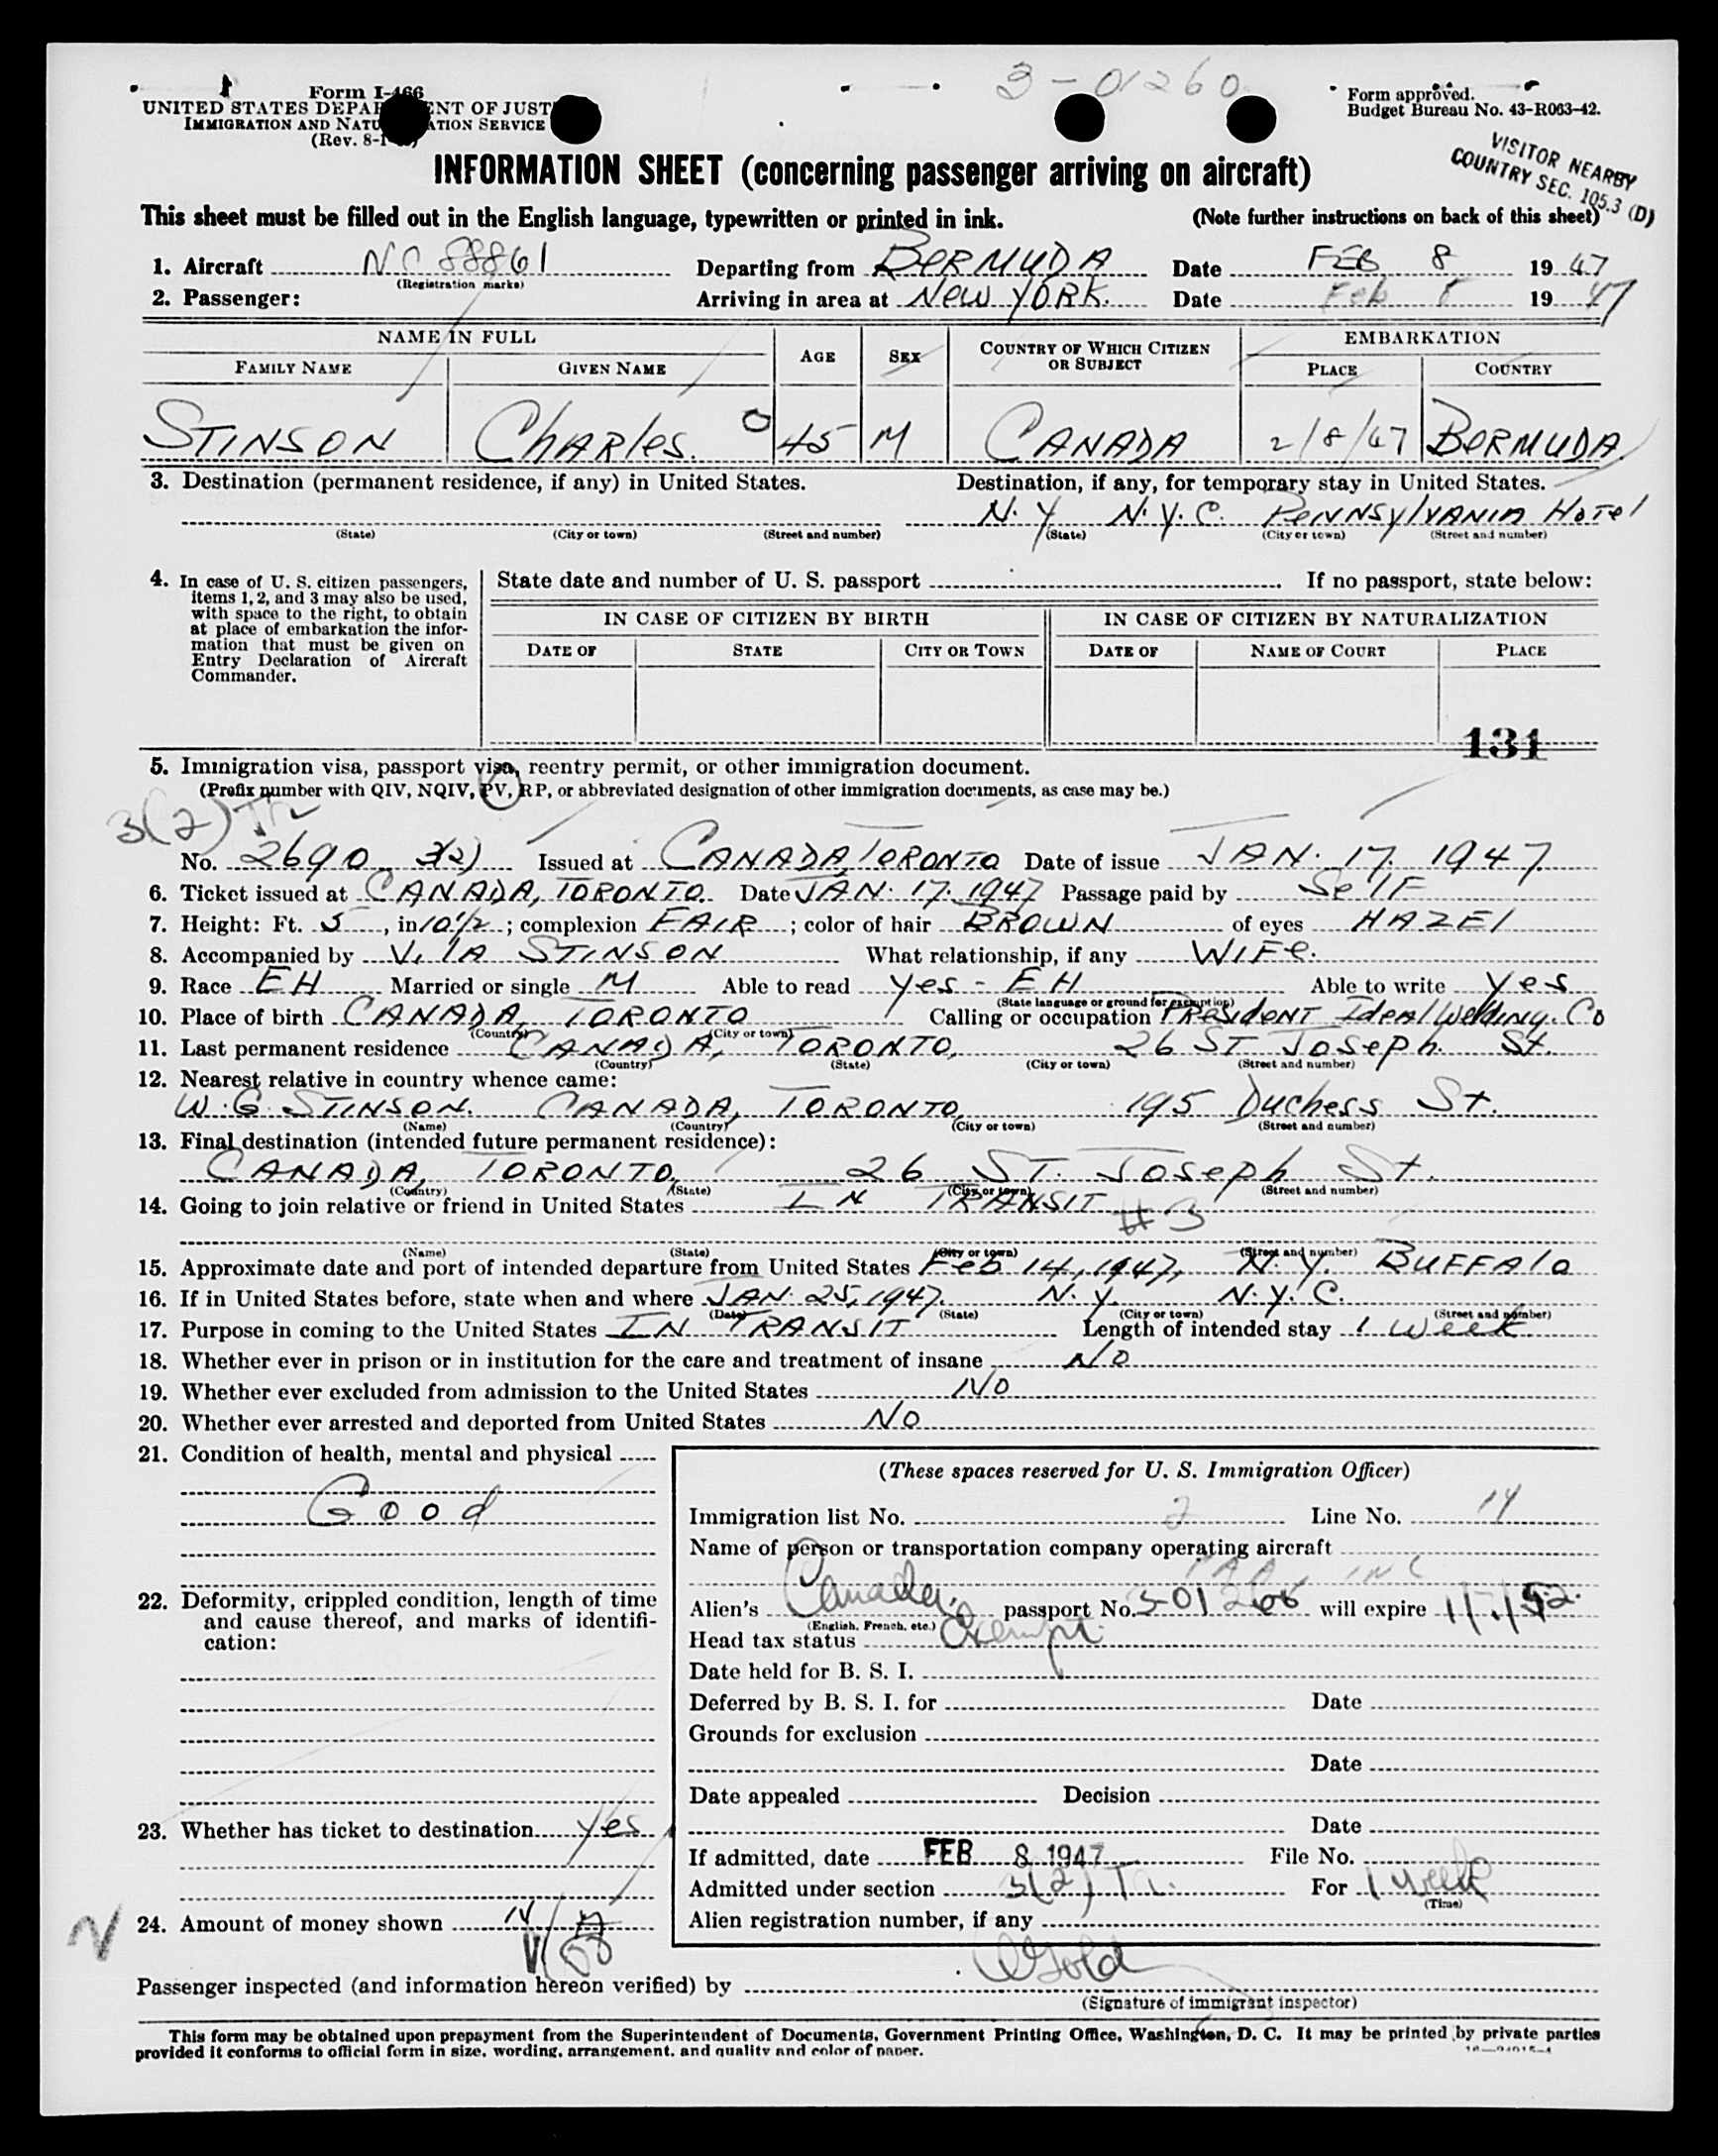 3-01260
Form I-466
UNITED STATES DEPARTMENT OF JUSTICE
IMMIGRATION AND NATURALIZATION SERVICE
(Rev. 8-1
Form approved.
Budget Bureau No. 43-R063-42.
VISITOR NEARBY
COUNTRY SEC. 105.3 (D)
INFORMATION SHEET (concerning passenger arriving on aircraft)
This sheet must be filled out in the English language, typewritten or printed in ink. (Note further instructions on back of this sheet)
1. Aircraft NC 88861 Departing from BERMUDA Date FEB 8 1947
(Registration marks)
2. Passenger: Arriving in area at NEW YORK. Date Feb 8 1947
NAME IN FULL AGE SEX COUNTRY OF WHICH CITIZEN OR SUBJECT EMBARKATION
FAMILY NAME GIVEN NAME PLACE COUNTRY
STINSON CHARles. 45 M CANADA 2/8/47 BERMUDA
3. Destination (permanent residence, if any) in United States. Destination, if any, for temporary stay in United States.
N.Y N.Y.C. PENNSylVANIA HOTEl
(State) (City or town) (Street and number) (State) (City or town) (Street and number)
4. In case of U. S. citizen passengers, items 1, 2, and 3 may also be used, with space to the right, to obtain at place of embarkation the information that must be given on Entry Declaration of Aircraft Commander.
State date and number of U. S. passport If no passport, state below:
IN CASE OF CITIZEN BY BIRTH IN CASE OF CITIZEN BY NATURALIZATION
DATE OF STATE CITY OR TOWN DATE OF NAME OF COURT PLACE
131
5. Immigration visa, passport visa, reentry permit, or other immigration document.
(Prefix number with QIV, NQIV, PV, RP, or abbreviated designation of other immigration documents, as case may be.)
3(2) Tr
No. 2690 3(2) Issued at CANADA, TORONTO Date of issue JAN. 17. 1947
6. Ticket issued at CANADA, TORONTO. Date JAN. 17. 1947 Passage paid by SelF
7. Height: Ft. 5, in 10 1/2; complexion FAIR; color of hair BROWN of eyes HAZEl
8. Accompanied by VilA STINSON What relationship, if any WIFe.
9. Race EH Married or single M Able to read yes - EH Able to write Yes
(State language or ground for exemption)
10. Place of birth CANADA, TORONTO Calling or occupation PResideNT IdeAl Welding. Co
(Country) (City or town)
11. Last permanent residence CANADA, TORONTO, 26 ST JOSeph. St.
(Country) (State) (City or town) (Street and number)
12. Nearest relative in country whence came:
W.G. STINSON. CANADA, TORONTO, 195 Duchess St.
(Name) (Country) (City or town) (Street and number)
13. Final destination (intended future permanent residence):
CANADA, TORONTO, 26 ST. JOSeph St.
(Country) (State) (City or town) (Street and number)
14. Going to join relative or friend in United States IN TRANSIT
#3
(Name) (State) (City or town) (Street and number)
15. Approximate date and port of intended departure from United States Feb 14, 1947, N.Y. BUFFAlO
16. If in United States before, state when and where JAN. 25, 1947. N.Y. N.Y.C.
(Date) (State) (City or town) (Street and number)
17. Purpose in coming to the United States IN TRANSIT Length of intended stay 1 week
18. Whether ever in prison or in institution for the care and treatment of insane NO
19. Whether ever excluded from admission to the United States NO
20. Whether ever arrested and deported from United States NO
21. Condition of health, mental and physical
Good
22. Deformity, crippled condition, length of time and cause thereof, and marks of identification:
23. Whether has ticket to destination yes
24. Amount of money shown
(These spaces reserved for U. S. Immigration Officer)
Immigration list No. 2 Line No. 14
Name of person or transportation company operating aircraft
Alien's Canada. passport No. will expire
(English, French, etc.)
Head tax status Exempt.
Date held for B. S. I.
Deferred by B. S. I. for Date
Grounds for exclusion
Date
Date appealed Decision
Date
If admitted, date FEB 8 1947 File No.
Admitted under section 3(2) Tr. For 1 week
(Time)
Alien registration number, if any
Passenger inspected (and information hereon verified) by
(Signature of immigrant inspector)
This form may be obtained upon prepayment from the Superintendent of Documents, Government Printing Office, Washington, D. C. It may be printed by private parties
provided it conforms to official form in size, wording, arrangement, and quality and color of paper.